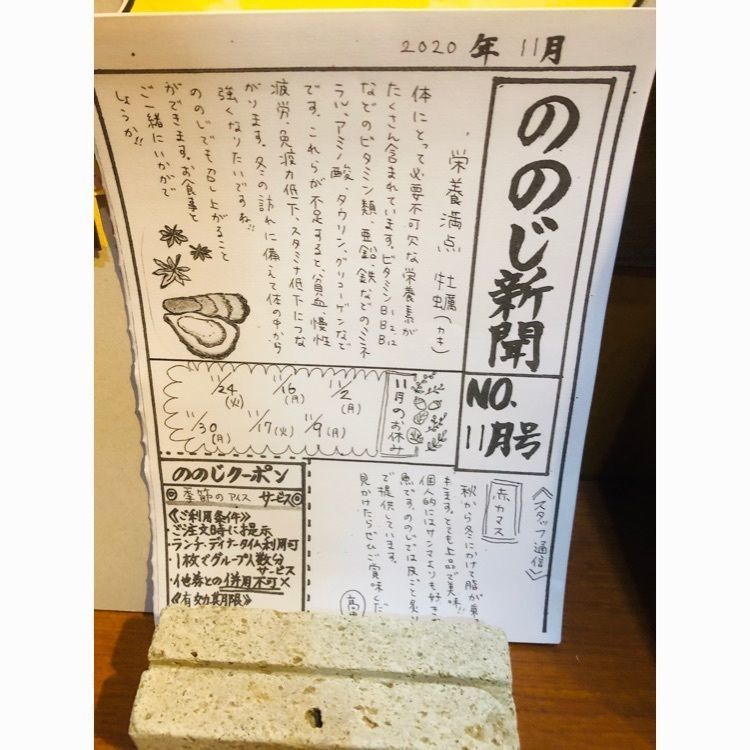 2020 年 11月
ののじ新聞
NO.
11月号
栄養満点 牡蠣(かき)
体にとって必要不可欠な栄養素が
たくさん含まれています。ビタミンB1B2B12
などのビタミン類、亜鉛、鉄などのミネ
ラル、アミノ酸、タウリン、グリコーゲンなど
です。これらが不足すると、貧血、慢性
疲労、免疫力低下、スタミナ低下につな
がります。冬の訪れに備えて体の中から
強くなりたいですね!!
ののじでも召し上がること
ができます。お食事と
ご一緒にいかがで
しょうか!!
11月のお休み
11/2(月)
11/9(月)
11/16(月)
11/17(火)
11/24(火)
11/30(月)
《スタッフ通信》
赤カマス
秋から冬にかけて脂が
きます。とても上品で美味!!
個人的にはサンマよりも好き
魚です。ののじでは皮ごと炙り
で提供しています。
見かけたらぜひご賞味くだ
ののじクーポン
季節のアイス サービス
《ご利用条件》
・ご注文時にお提示
・ランチ、ディナータイム利用可
・1枚でグループ人数分
サービス
・他券との併用不可×
《有効期限》